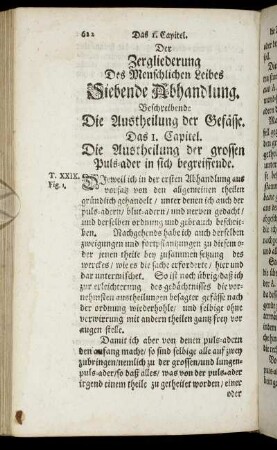 622 Das 1. Capitel.
Der
Zergliederung
Des Menschlichen Leibes
Siebende Abhandlung.
Beschreibende
Die Austheilung der Gefässe.
Das 1. Capitel.
Die Austheilung der grossen
Puls-ader in sich begreiffende.
T. XXIX.
Fig. 1.
Dieweil ich in der ersten Abhandlung aus
vorsatz von den allgemeinen theilen
gründlich gehandelt / unter denen ich auch der
puls-adern/ blut-adern/ und nerven gedacht/
und derselben ordnung und gebrauch beschrie-
ben. Nachgehends habe ich auch derselben
zweigungen und fortpflantzungen zu diesem o-
der jenen theile bey zusammen setzung des
werckes/ wie es die sache erforderte/ hier und
dar untermischet. So ist nach übrig/ daß ich
zur erleichterung des gedächtnisses die vor-
nehmsten austheilungen besagter gefässe nach
der ordnung wiederhohle/ und selbige ohne
verwirrung mit andern theilen gantz frey vor
augen stelle.
Damit ich aber von denen puls-adern
den anfang mache/ so sind selbige alle auf zwey
zubringen/ nemlich zu der grossen/ und lungen-
puls-ader/ so daß alles/ was von der puls-ader
irgend einem theile zu getheilet worden/ einer
oder